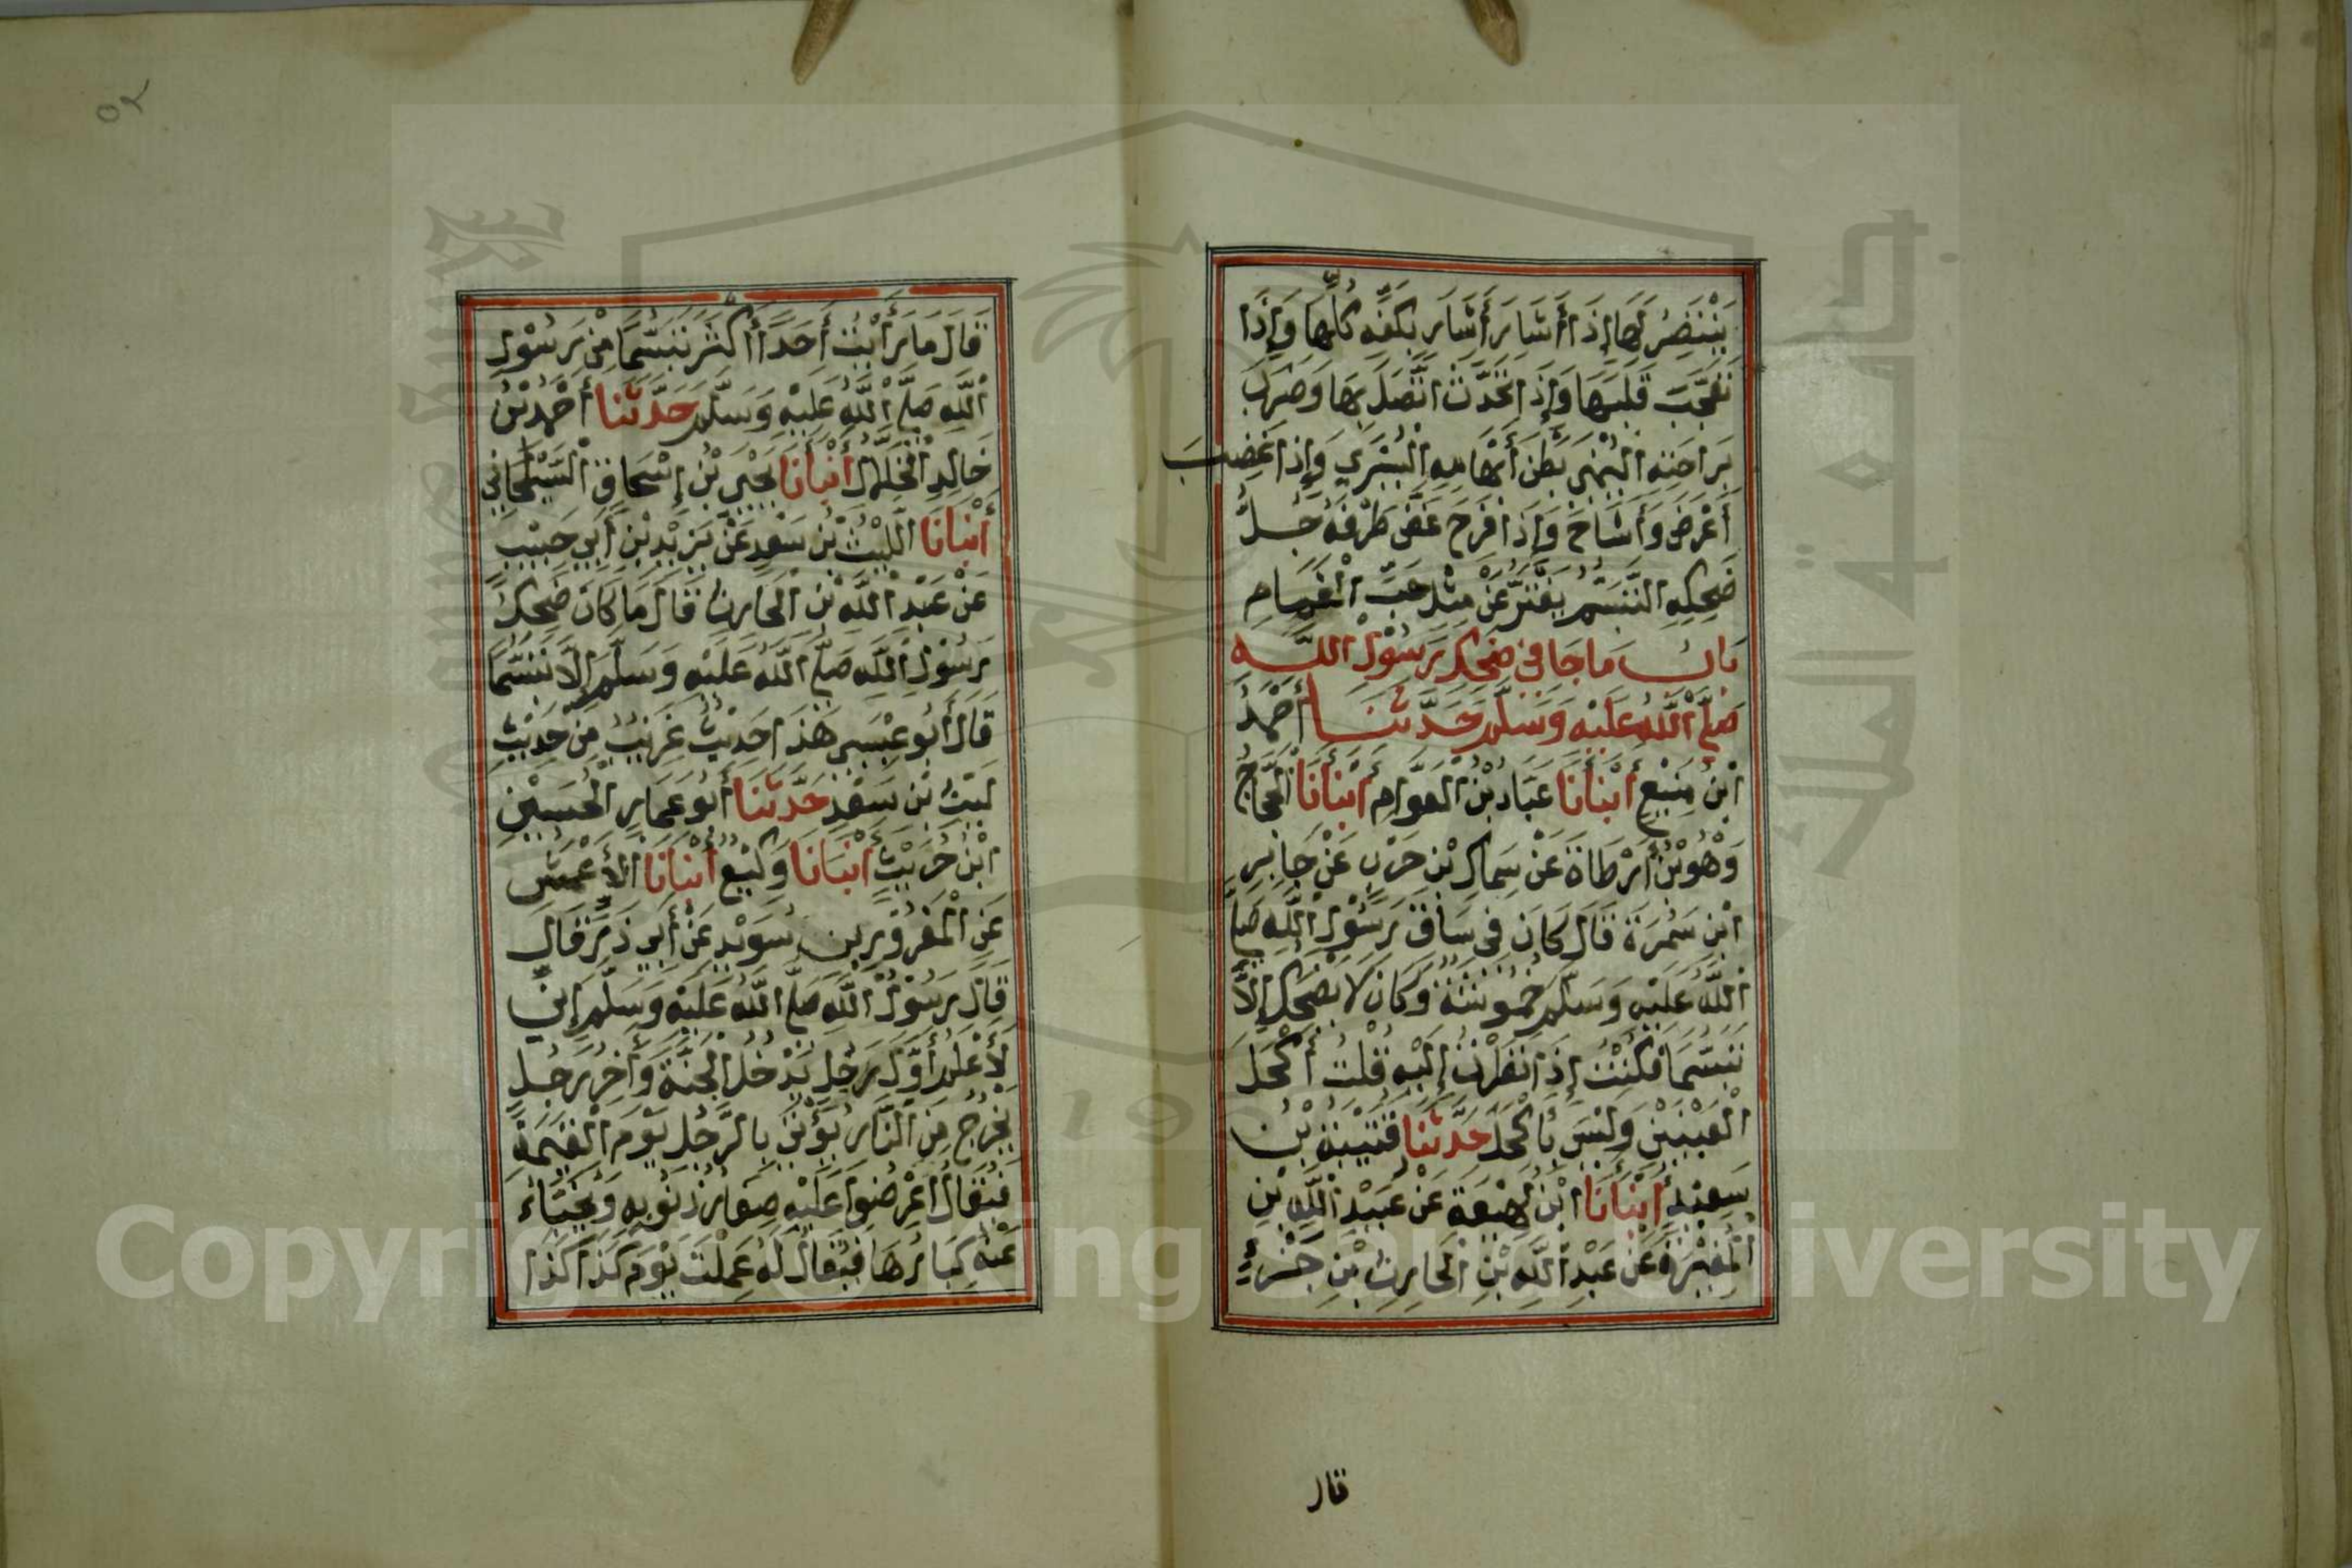 يَنْتَصِرُ لَهَا إِذَا أَشَارَ أَشَارَ بِكَفِّهِ كُلِّهَا وَإِذَا
تَعَجَّبَ قَلَبَهَا وَإِذَا تَحَدَّثَ اتَّصَلَ بِهَا وَضَرَبَ
بِرَاحَتِهِ الْيُمْنَى بَطْنَ أَبْهَامِهِ الْيُسْرَي وَإِذَا غَضِبَ
أَعْرَضَ وَأَشَاحَ وَإِذَا فَرِحَ غَضَّ طَرْفَهُ جُلُّ
ضَحِكِهِ التَّبَسُّمُ يَفْتَرُّ عَنْ مِثْلِ حَبِّ الْغَمَامِ
بَابُ مَا جَا فِي ضَحِكِ رَسُوْلِ اللَّهِ
صَلَّى اللَّهُ عَلَيْهِ وَسَلَّمَ حَدَّثَنَا أَحْمَدُ
ابْنُ مَنِيْعٍ أَنْبَأَنَا عَبَّادُ بْنُ الْعَوَّامِ أَنْبَأَنَا الْحَجَّاجُ
وَهُوَ بْنُ أَرْطَاةَ عَنْ سِمَاكِ بْنِ حَرْبٍ عَنْ جَابِرِ
ابْنِ سَمُرَةَ قَالَ كَانَ فِي سَاقِ رَسُوْلِ اللَّهِ صَلَّى
اللَّهُ عَلَيْهِ وَسَلَّمَ حُمُوْشَةٌ وَكَانَ لَا يَضْحَكُ إِلَّا
تَبَسُّمًا فَكُنْتُ إِذَا نَظَرْتُ إِلَيْهِ قُلْتُ أَكْحَلُ
الْعَيْنَيْنِ وَلَيْسَ بِأَكْحَلَ حَدَّثَنَا قُتَيْبَةُ بْنُ
سَعِيْدٍ أَنْبَأَنَا ابْنُ لَهِيْعَةَ عَنْ عُبَيْدِ اللَّهِ بْنِ
الْمُغِيْرَةِ عَنْ عَبْدِ اللَّهِ بْنِ الْحَارِثِ بْنِ جَزْءٍ
قال
٥٢
قَالَ مَا رَأَيْتُ أَحَدًا أَكْثَرَ تَبَسُّمًا مِنْ رَسُوْلِ
اللَّهِ صَلَّى اللَّهُ عَلَيْهِ وَسَلَّمَ حَدَّثَنَا أَحْمَدُ بْنُ
خَالِدٍ الْخَلَّالُ أَنْبَأَنَا يَحْيَى بْنُ إِسْحَاقَ السَّيْلَحَانِي
أَنْبَأَنَا اللَّيْثُ بْنُ سَعْدٍ عَنْ يَزِيْدَ بْنِ أَبِي حَبِيْبٍ
عَنْ عَبْدِ اللَّهِ بْنِ الْحَارِثِ قَالَ مَا كَانَ ضَحِكُ
رَسُوْلِ اللَّهِ صَلَّى اللَّهُ عَلَيْهِ وَسَلَّمَ إِلَّا تَبَسُّمًا
قَالَ أَبُو عِيْسَى هَذَا حَدِيْثٌ غَرِيْبٌ مِنْ حَدِيْثِ
لَيْثِ بْنِ سَعْدٍ حَدَّثَنَا أَبُو عَمَّارٍ الْحُسَيْنُ
ابْنُ حُرَيْثٍ أَنْبَأَنَا وَكِيْعٌ أَنْبَأَنَا الْأَعْمَشُ
عَنِ الْمَعْرُوْرِ بْنِ سُوَيْدٍ عَنْ أَبِي ذَرٍّ قَالَ
قَالَ رَسُوْلُ اللَّهِ صَلَّى اللَّهُ عَلَيْهِ وَسَلَّمَ إِنِّي
لَأَعْلَمُ أَوَّلَ رَجُلٍ يَدْخُلُ الْجَنَّةَ وَأَخِرَ رَجُلٍ
يَخْرُجُ مِنَ النَّارِ يُؤْتَى بِالرَّجُلِ يَوْمَ الْقِيَمَةِ
فَيُقَالُ اعْرِضُوا عَلَيْهِ صِغَارَ ذُنُوْبِهِ وَيُخَبَّاءُ
عَنْهُ كِبَارُهَا فَيُقَالُ لَهُ عَمِلْتَ يَوْمَ كَذَا كَذَا
Copyright © King Saud University